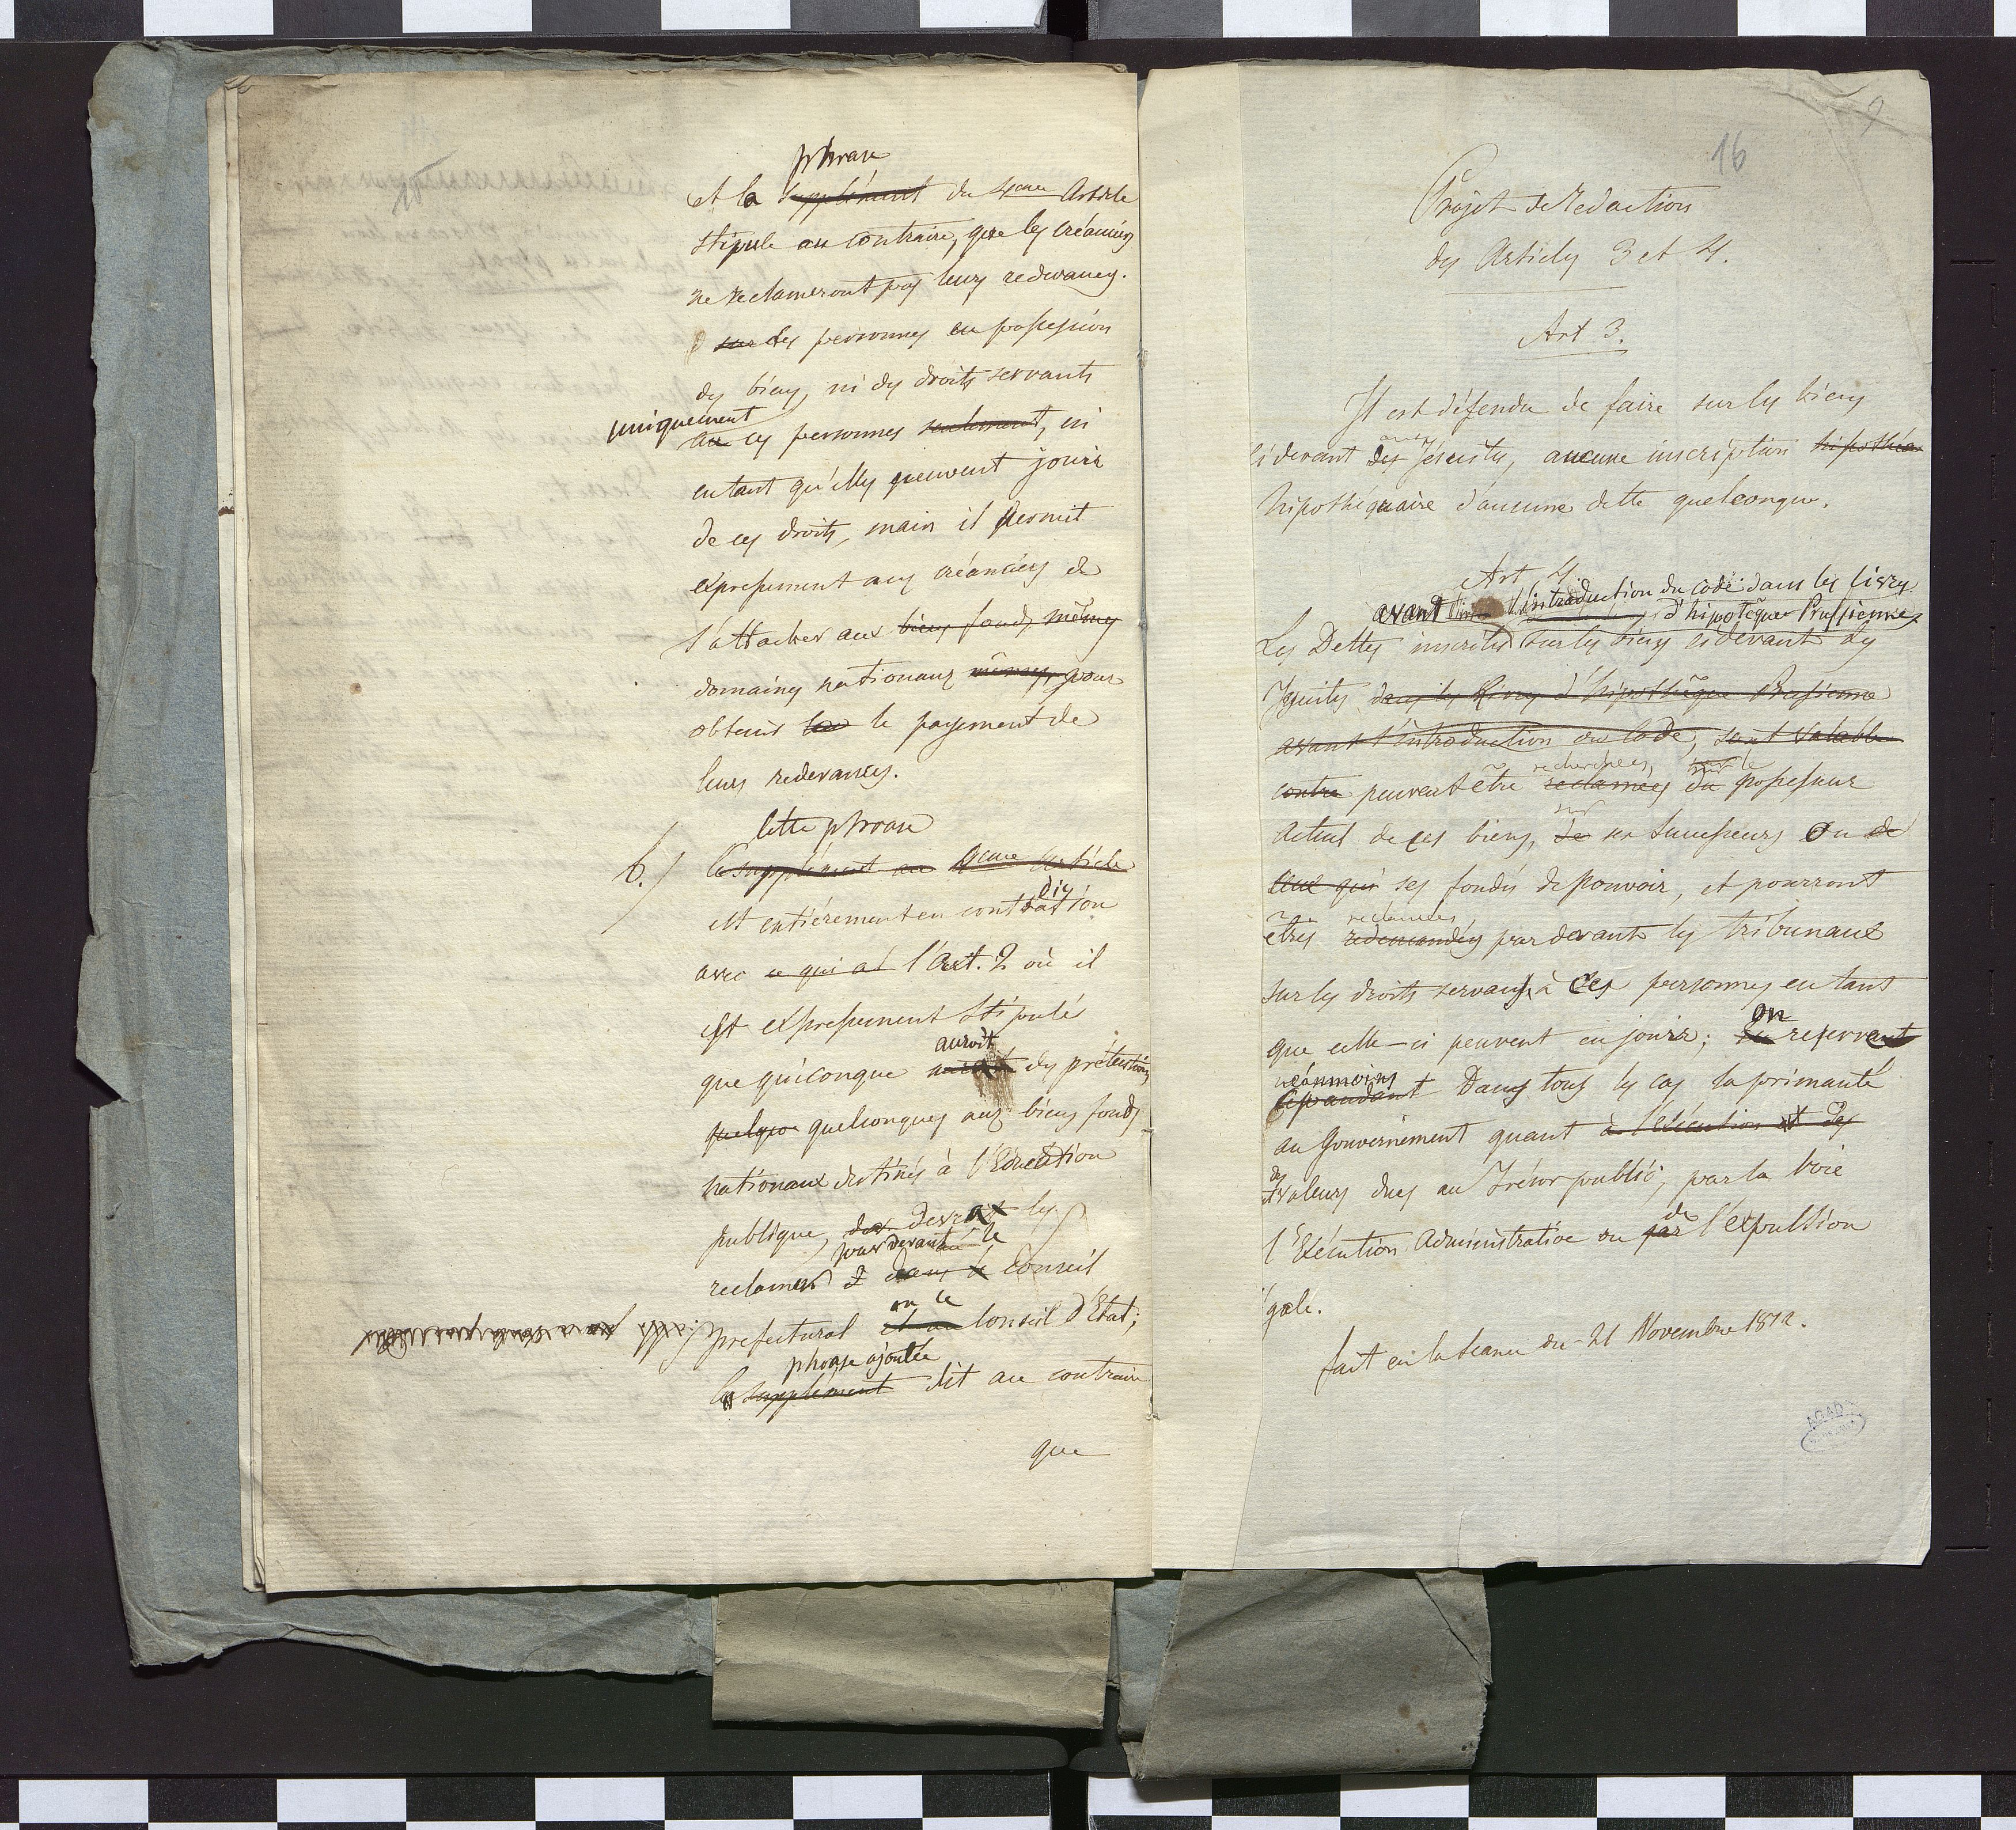 phrase
et la supplément du 4eme Article
stipule au contraire, que les créanciers
ne reclameront pas leurs redevances
sur des personnes en possession
des biens, ni des droits servants
uniquement
au ces personnes seulement, en
entant qu'elles peuvent jouir
de ces droits, mais il permit
expressement aux créanciers de
s'attacher aux biens fonds mêmes
domaines nationaux mêmes, pour
obtenir le payement de
leurs redevances.
Cette phrase
b./ le supplément au 4eme Article
dic
est entiérement en contration
avec ce qui à l'Art. 2 où il
est expressement stipulé
auroit
que quiconque des prétentions
quelque quelconques aux biens fonds
nationaux destinés à l'Education
publique, devroit les
pardevant le
reclamer dans le Conseil
ou le
prefectural et au Conseil d'Etat;
phrase ajoutée
la supplément dit au contraire
que
9
16
Projet de Redaction
des Articles 3 et 4.
Art 3.
Il est défendu de faire sur les biens
cidevant des Jésuites, aucune inscription hipothéca
hipothéquaire d'aucune dette quelconque.
Art 4
avant l'introduction du code dans les livres
d'hipotêque Prussiennes
Les Dettes inscrites sur les biens cidevant des
Jesuites dans les Livres d'hipothêque Prussienne
avant l'introduction du Code, sont valables
recherchées, sur le
contre peuvent être reclamées du possesseur
sur
actuel de ces biens, de ses Successeurs ou de
ceux qui ses fondés de pouvoir, et pourront
reclamées,
êtres redemandées pardevant les tribunaux
sur les droits servans à ces personnes en tant
on
que celle-ci peuvent en jouir; en reservant
néanmoins
cependant Dans tous les cas la primauté
au Gouvernement quant à l'éxécution et des
des
valeurs dues au Trésor public, par la voie
de
l'Exécution Administrative ou par l'expulsion
égale.
fait en la seance du 21 Novembre 1812.
AGAD